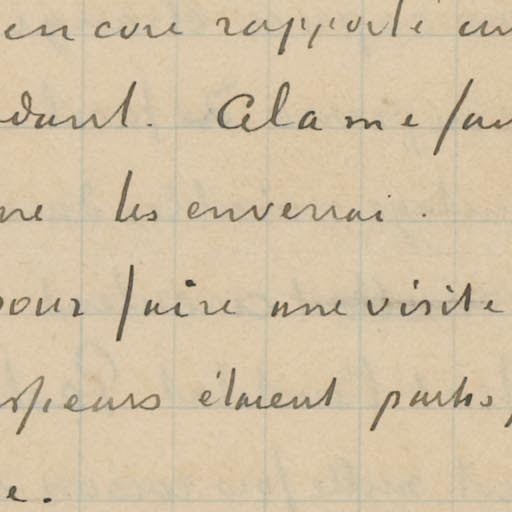 encore rapporté un
dant. Cela me fai
ne les enverrai.
pour faire une visite
étaient partis,
e.